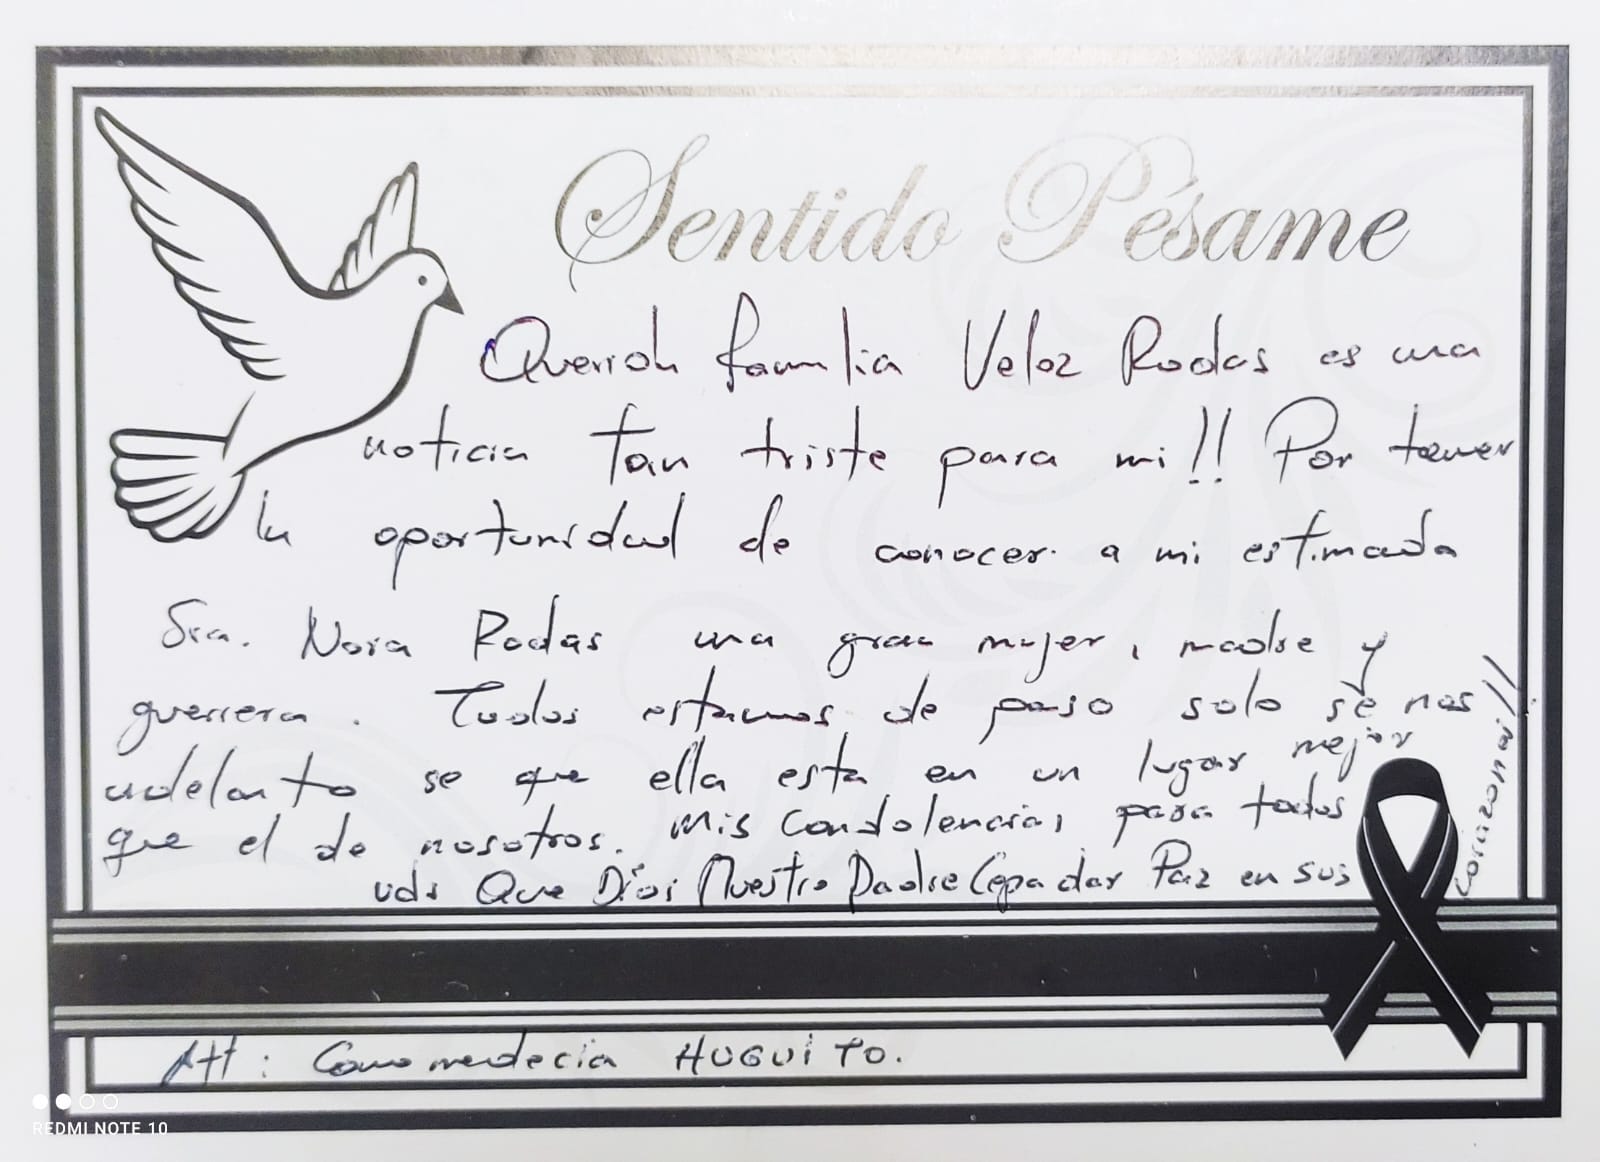 Sentido Pésame
Querida familia Veloz Rodas es una
noticia tan triste para mi!! Por tener
la oportunidad de conocer a mi estimada
Sra. Nora Rodas una gran mujer, madre y
guerrera. Todos estamos de paso solo se nos
adelanto se que ella esta en un lugar mejor
que el de nosotros. Mis Condolencias para todos
uds Que Dios Nuestro Padre Cepa dar Paz en sus
corazones!!
Att: Como me decia HUGUITO.
REDMI NOTE 10